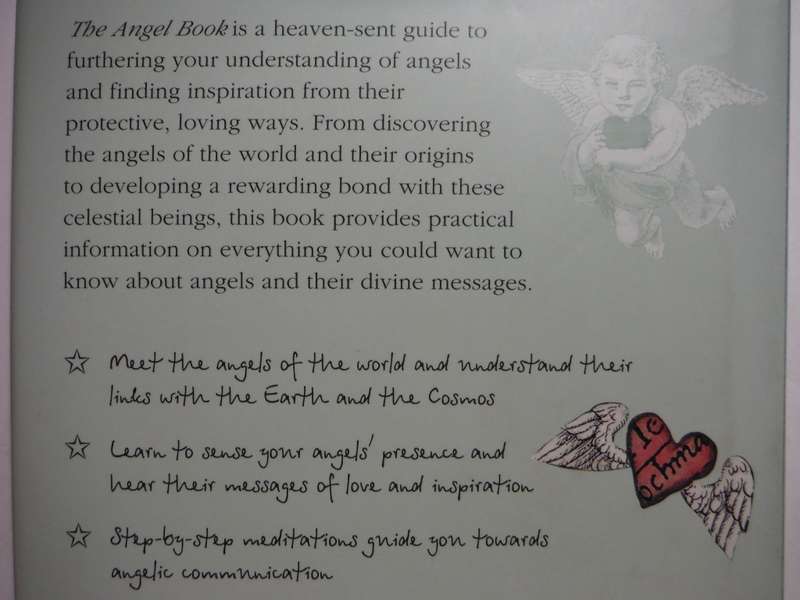 The Angel Book is a heaven-sent guide to
furthering your understanding of angels
and finding inspiration from their
protective, loving ways. From discovering
the angels of the world and their origins
to developing a rewarding bond with these
celestial beings, this book provides practical
information on everything you could want to
know about angels and their divine messages.
☆ Meet the angels of the world and understand their
links with the Earth and the Cosmos
☆ Learn to sense your angels' presence and
hear their messages of love and inspiration
☆ Step-by-step meditations guide you towards
angelic communication